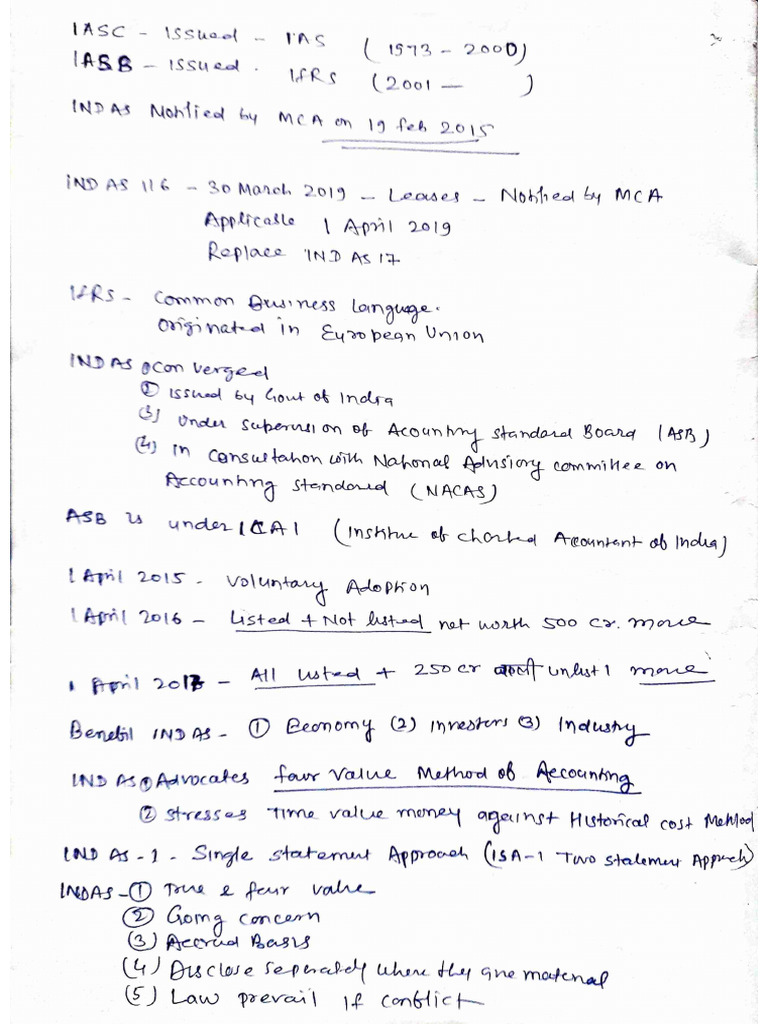 IASC - Issued - IAS (1973 - 2000)
IASB - Issued - IFRS (2001 - )
IND AS Notified by MCA on 19 feb 2015
IND AS 116 - 30 March 2019 - Leases - Notified by MCA
Applicable 1 April 2019
Replace IND AS 17
IFRS - Common Business Language.
Originated in European Union
IND AS ① Converged
② Issued by Govt of India
(3) Under supervision of Acounting Standard Board (ASB)
(4) In Consultation with National Advisiory committee on
Accounting Standard (NACAS)
ASB is under ICAI (Institue of Charted Accountant of India)
1 April 2015 - Voluntary Adoption
1 April 2016 - Listed + Not listed net worth 500 cr. more
1 April 2017 - All listed + 250 cr unlist more
Benefit IND AS - ① Economy (2) Investers (3) Industry
IND AS ① Advocates fair Value Method of Accounting
② Stresses Time value money against Historical cost Method
IND AS - 1 - Single statement Approach (ISA-1 Two statement Approach)
INDAS - ① True & fair value
② Going concern
(3) Accrual Basis
(4) Disclose seperately where they are material
(5) Law prevail if conflict